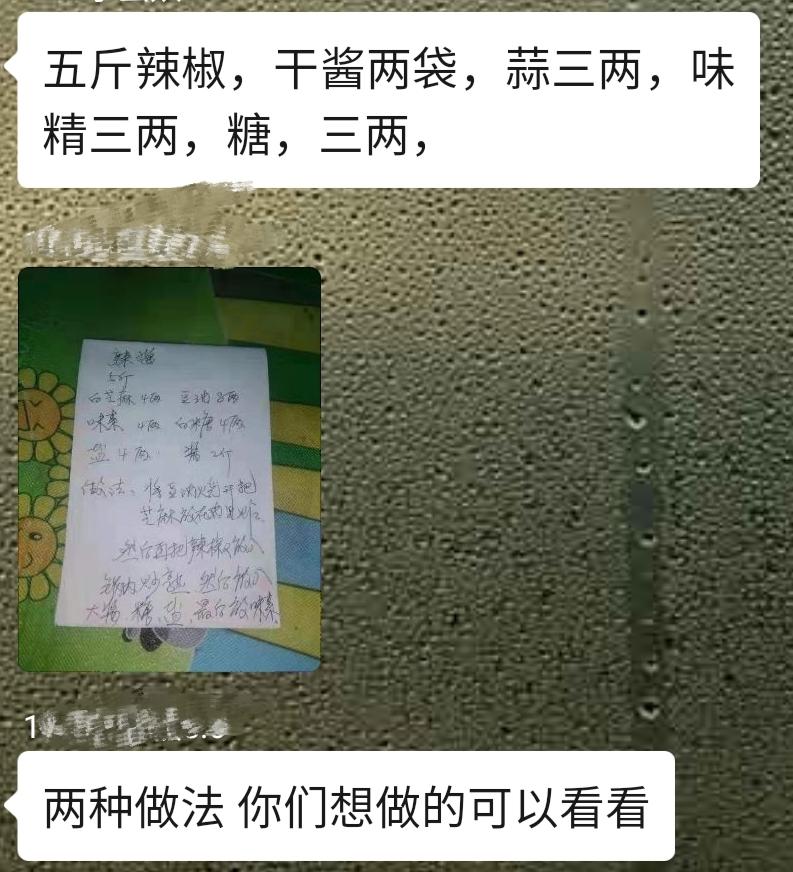 五斤辣椒，干酱两袋，蒜三两，味
精三两，糖，三两，
辣酱
5斤
白芝麻 4两 豆油 8两
味素 4两 白糖 4两
盐 4两 酱 2斤
做法：将豆油烧开把
芝麻放在肉里炒
然后再把辣椒放入
锅内炒熟 然后放入
大酱、糖、盐、最后放味素
两种做法 你们想做的可以看看